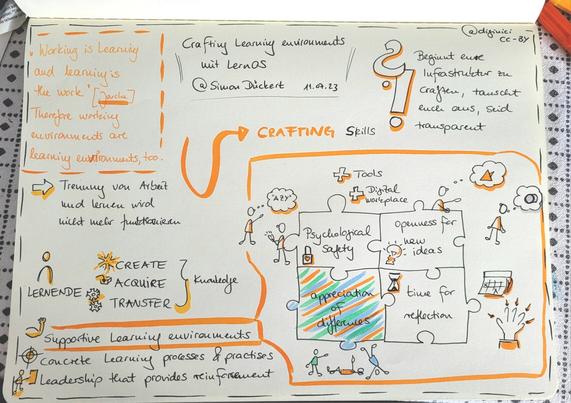 "Working is Learning
and learning is
the work" [Jarche]
Therefore working
environments are
learning environments, too.
Crafting Learning environments
mit LernOS
@Simon Dückert 11.07.23
@diginici
CC-BY
Beginnt eure
Infrastruktur zu
craften, tauscht
euch aus, seid
transparent
CRAFTING Skills
Trennung von Arbeit
und lernen wird
nicht mehr funktionieren
LERNENDE
CREATE
ACQUIRE
TRANSFER
Knowledge
Supportive Learning environments
Concrete Learning processes & practises
Leadership that provides reinforcement
+ Tools
+ Digital
workplace
"AZY"
Psychological
Safety
openness for
new
ideas
appreciation
of
differences
time for
reflection